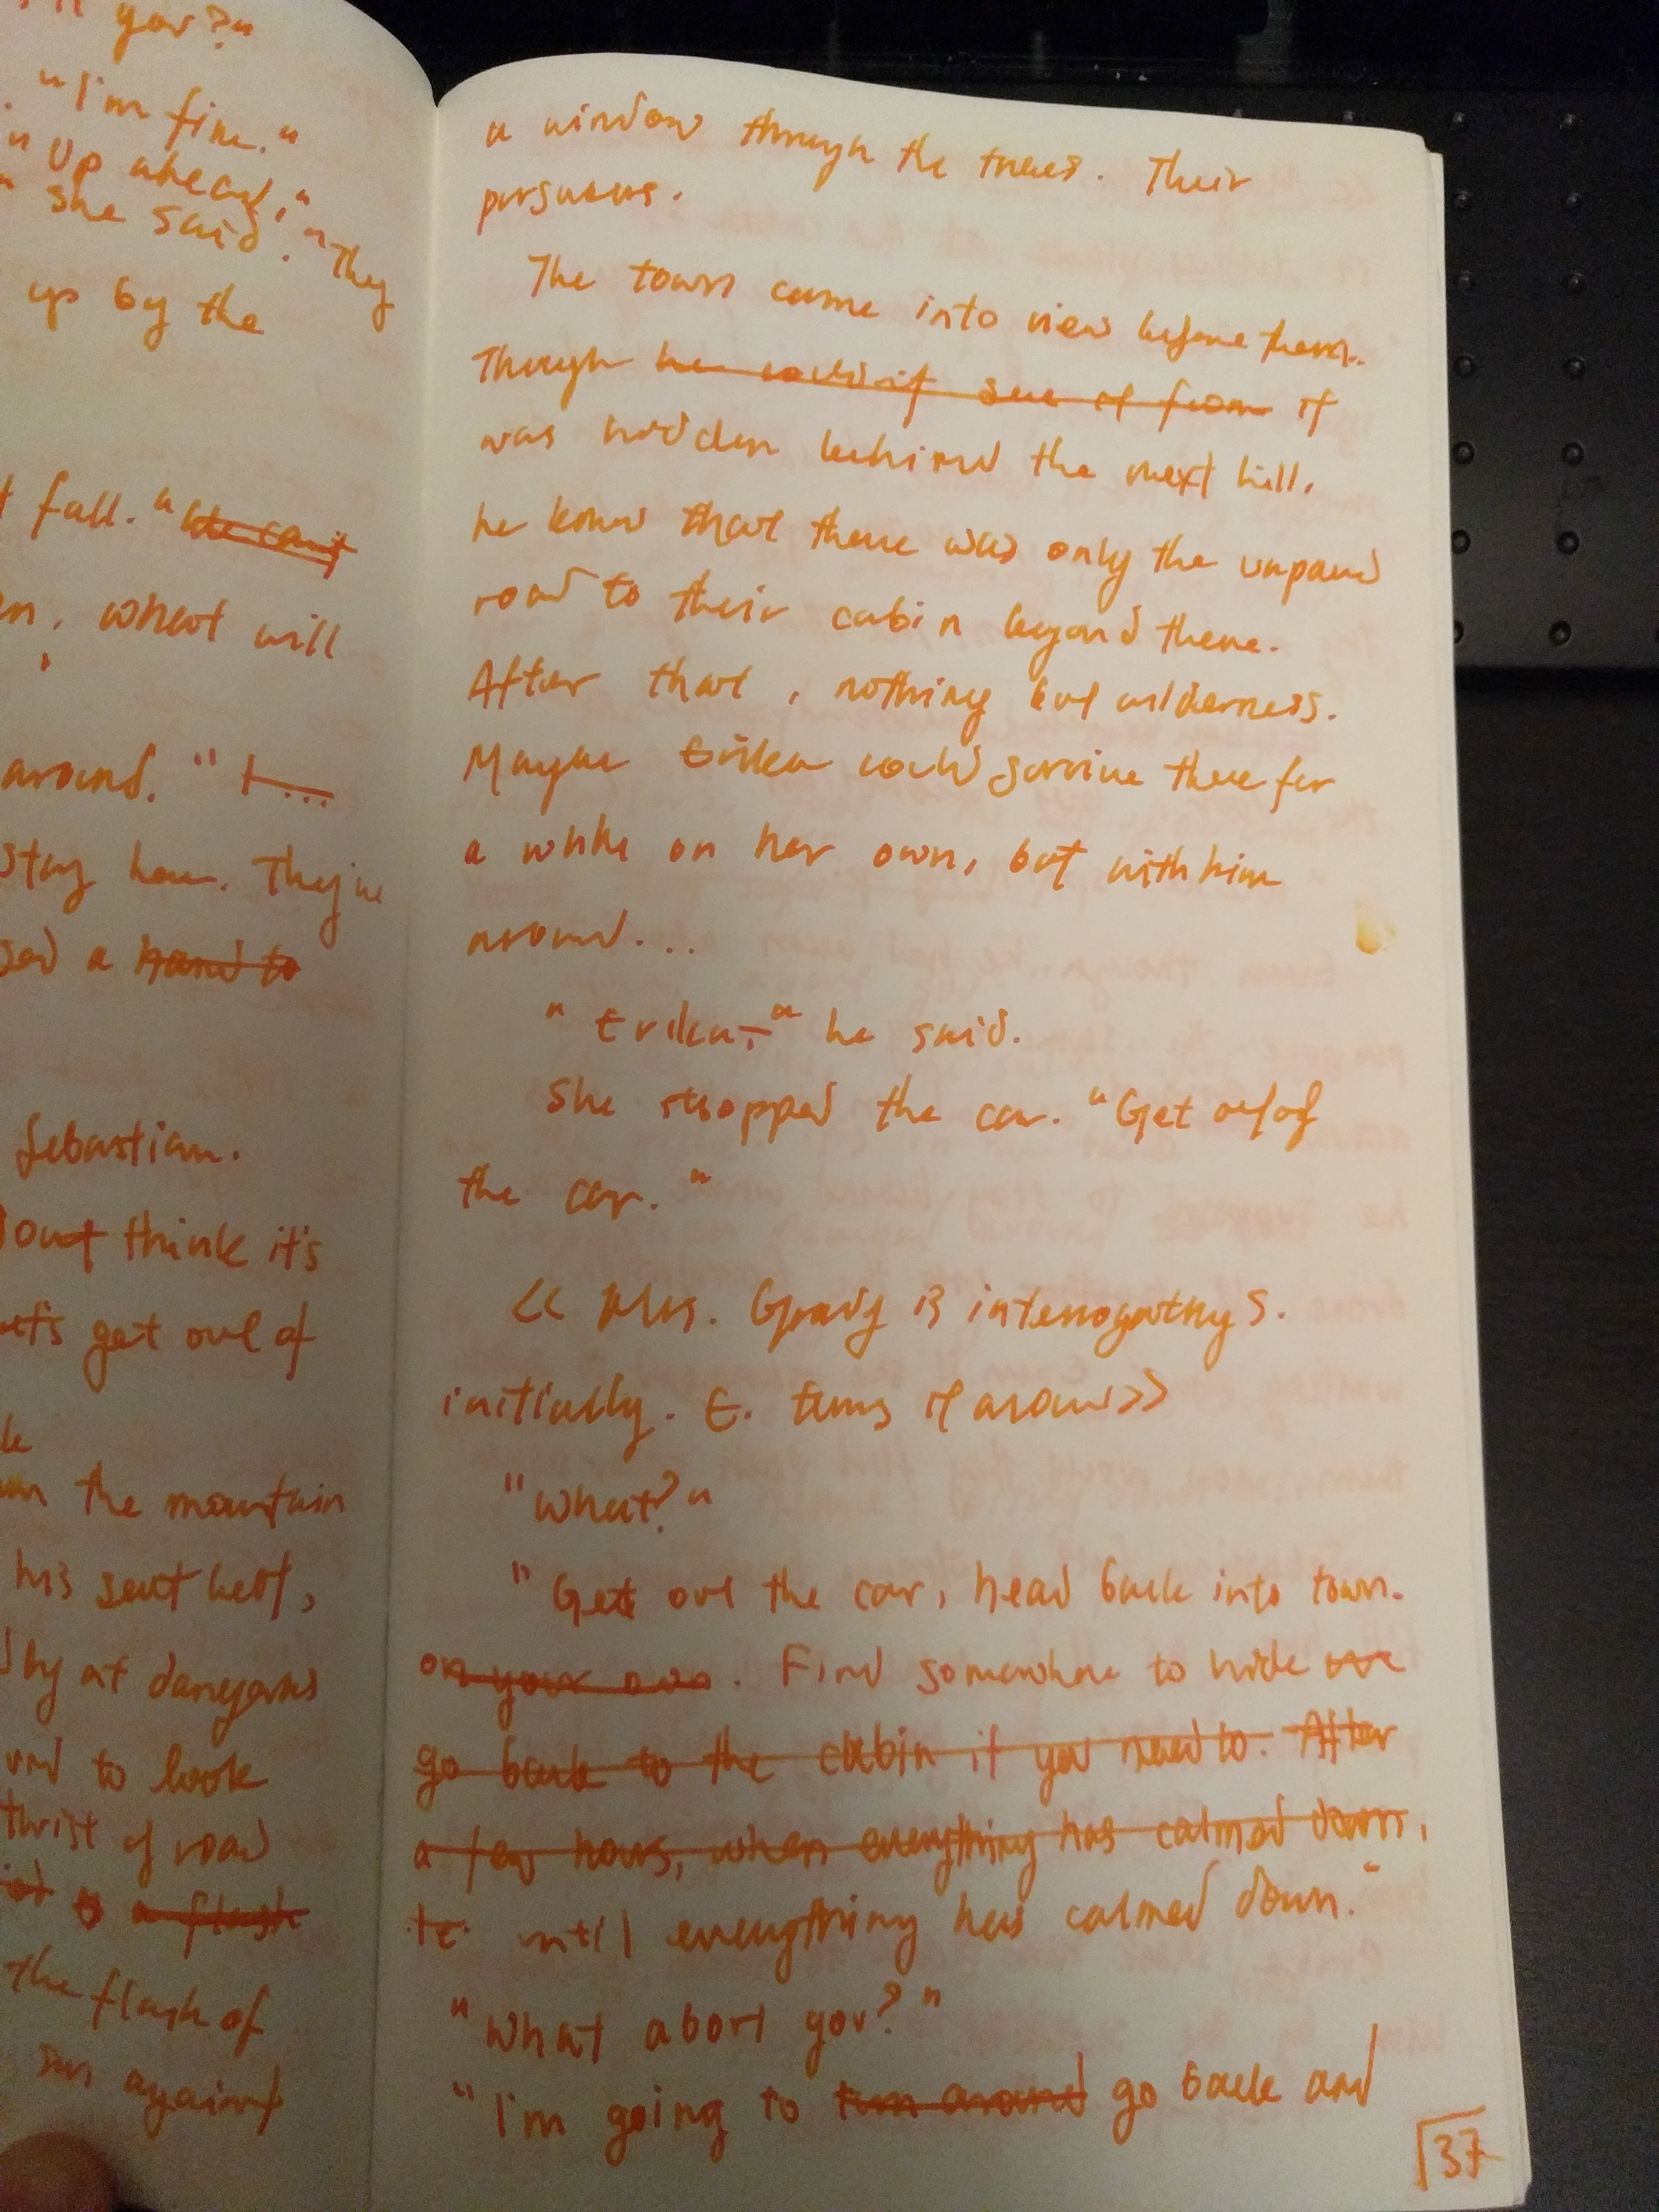 you?"
"I'm fine."
"Up ahead,"
" She said. "They
up by the
fall. "We can't
, what will
around." I...
stay here. They've
a hand to
Sebastian.
think it's
get out of
the mountain
his seat belt,
by at dangerous
to look
thrist of road
a flash
the flash of
sun against
a window through the trees. Their
pursuers.
The town came into view before them.
Though he couldn't see it from it
was hidden behind the next hill,
he knew that there was only the unpaved
road to their cabin beyond there.
After that, nothing but wilderness.
Maybe Erika could survive there for
a while on her own, but with him
around...
"Erika," he said.
She stopped the car. "Get out of
the car."
<< Mrs. Grady is interrogating S.
initially. E. turns it around >>
"What?"
"Get out the car, head back into town.
on your own. Find somewhere to hide or
go back to the cabin if you need to. After
a few hours, when everything has calmed down,
until everything has calmed down."
"What about you?"
"I'm going to turn around go back and
37